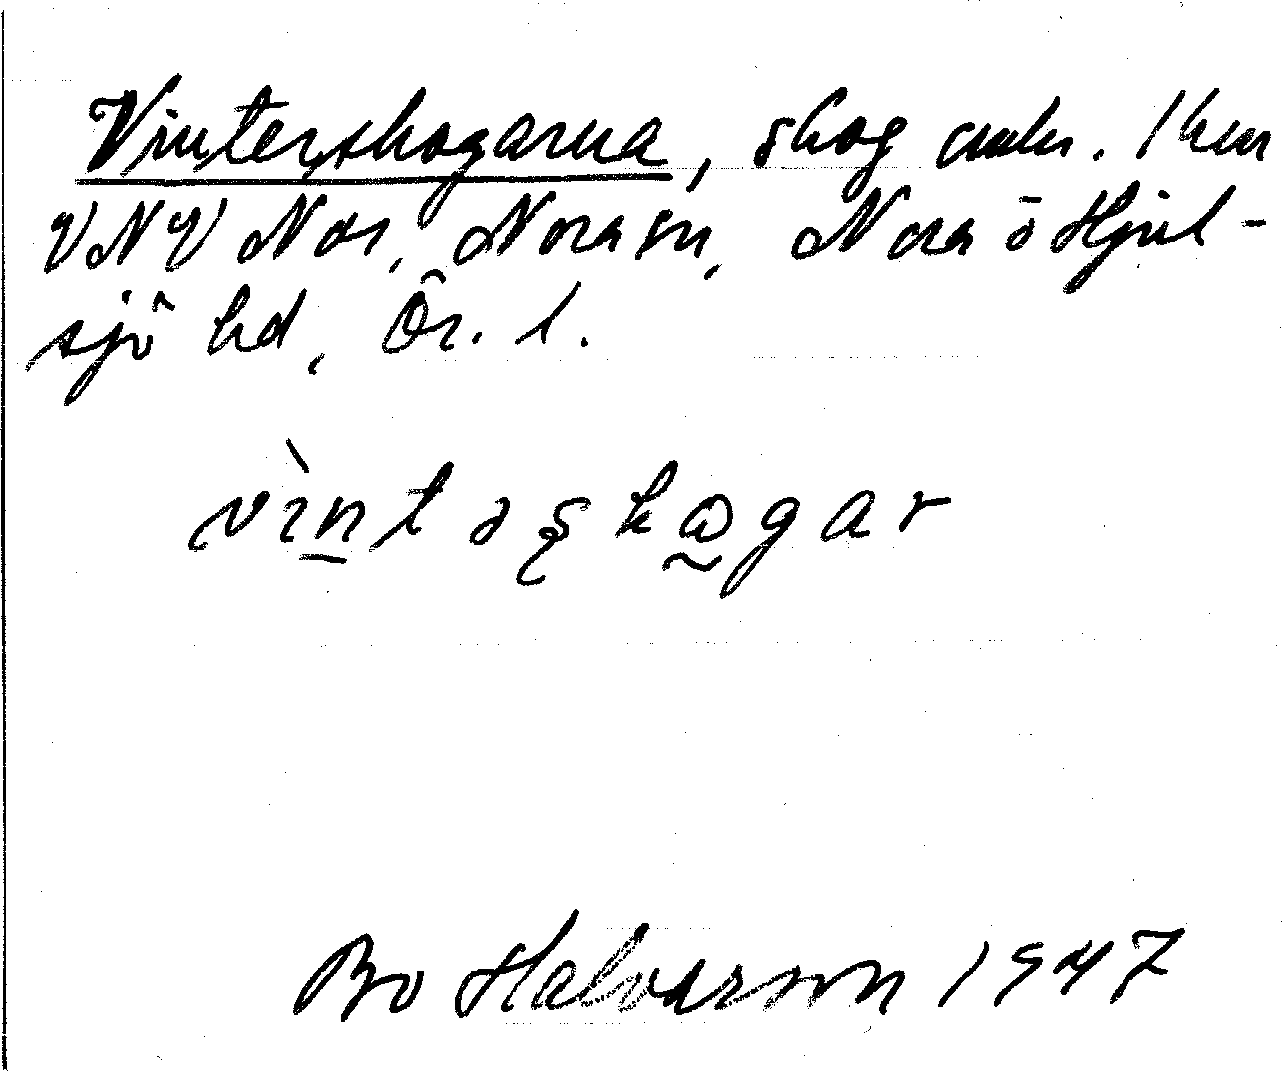 Vinterskogarna, skog omkr. 1 km
VNV Nor, Nora sn, Nora o Hjul-
sjö hd, Ör. l.
vìntəʂkøgar
Bo Halvarson 1947